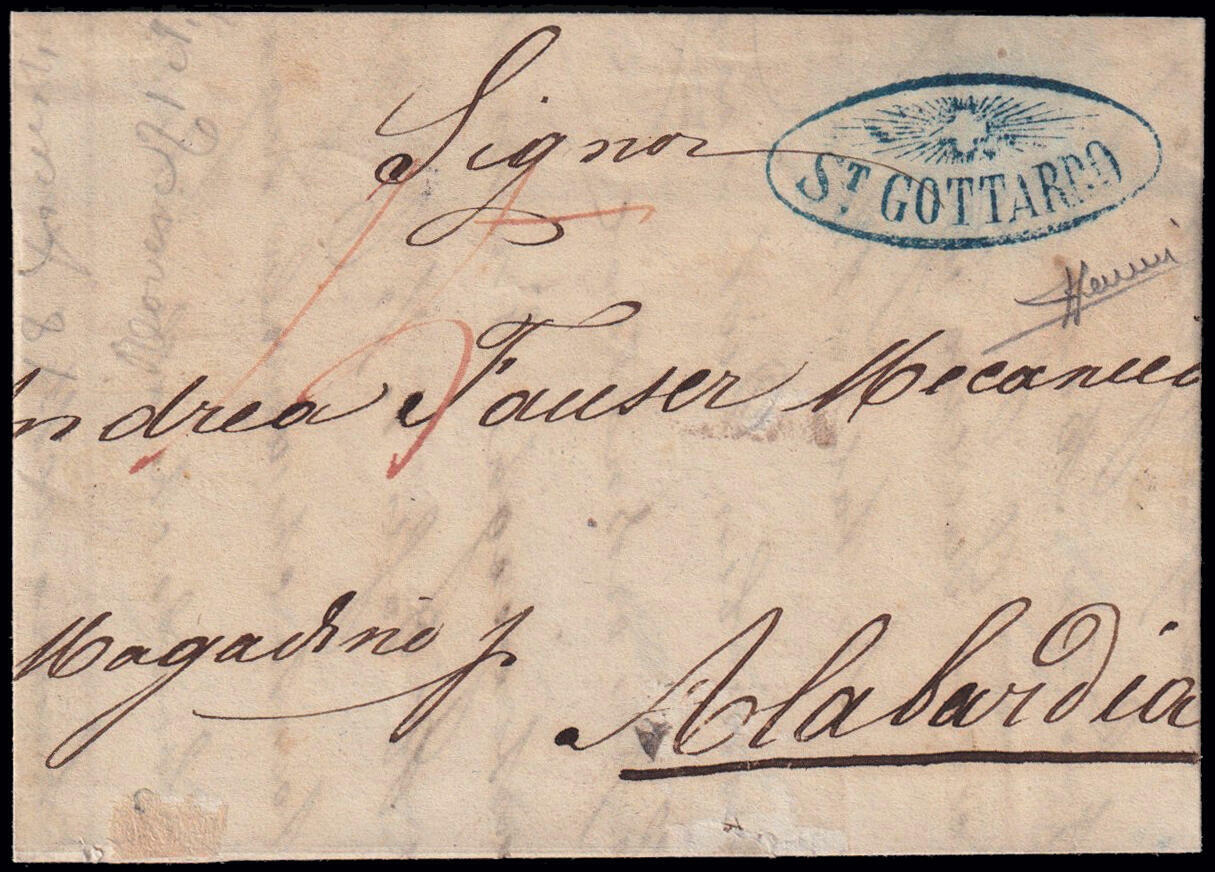 Signor
ST. GOTTARDO
Andrea Fauser Mecanico
Magadino p
Alabardia